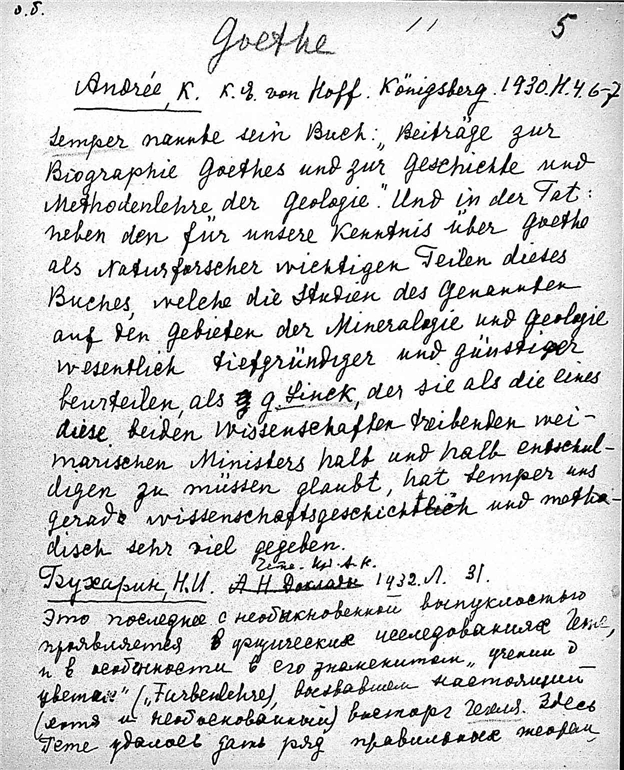 о.б.
Goethe
5
Andrée, K. K. E. von Hoff. Königsberg. 1930. H. 4. 6-7
Semper nannte sein Buch: „Beiträge zur
Biographie Goethes und zur Geschichte und
Methodenlehre der Geologie". Und in der Tat:
neben den für unsere Kenntnis über Goethe
als Naturforscher wichtigen Teilen dieses
Buches, welche die Studien des Genannten
auf den Gebieten der Mineralogie und Geologie
wesentlich tiefgründiger und günstiger
beurteilen, als g. Linck, der sie als die eines
diese beiden Wissenschaften treibenden wei-
marischen Ministers halb und halb entschul-
digen zu müssen glaubt, hat Semper uns
gerade wissenschaftsgeschichtlich und metho-
disch sehr viel gegeben.
Бухарин, Н.И. 1932. Л. 31.
Это последнее с необыкновенной выпуклостью
проявляется в физических исследованиях Гете,
и в особенности в его знаменитом „учении о
цветах" („Furbenlehre), вызвавшем настоящий
(хотя и необоснованный) восторг Гегеля. Здесь
Гете удалось дать ряд правильных теорем,